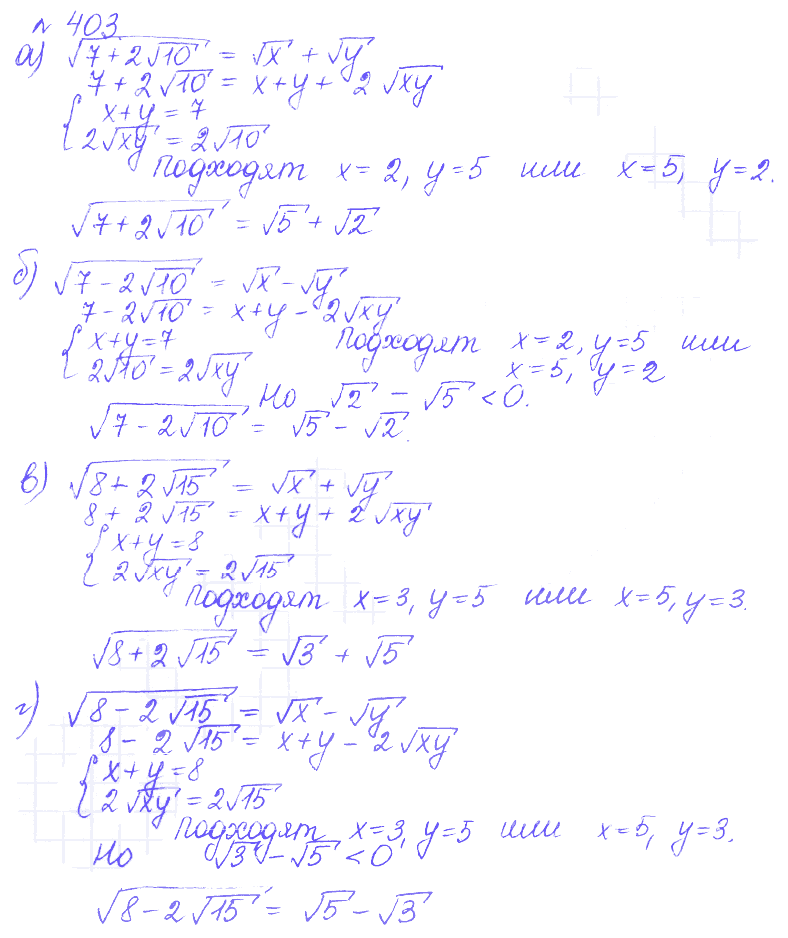 № 403.
а) √(7+2√10) = √x + √y
7+2√10 = x+y+ 2√xy
{ x+y=7
2√xy = 2√10
Подходят x=2, y=5 или x=5, y=2.
√(7+2√10) = √5+√2
б) √(7-2√10) = √x-√y
7-2√10 = x+y- 2√xy
{ x+y=7 Подходят x=2, y=5 или
2√10=2√xy x=5, y=2
Но √2 - √5 <0.
√(7-2√10) = √5-√2.
в) √(8+2√15) = √x + √y
8+ 2√15 = x+y+ 2√xy
{ x+y=8
2√xy = 2√15
Подходят x=3, y=5 или x=5, y=3.
√(8+2√15) = √3 + √5
г) √(8-2√15) = √x - √y
8- 2√15 = x+y- 2√xy
{ x+y=8
2√xy = 2√15
Подходят x=3, y=5 или x=5, y=3.
Но √3-√5 <0
√(8-2√15) = √5-√3